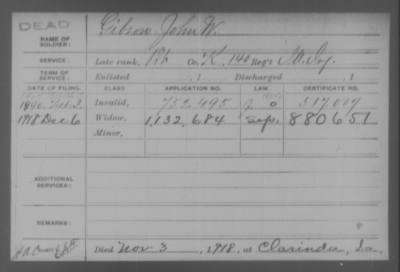 DEAD
NAME OF SOLDIER: Gibson, John W.
SERVICE: Late rank, Pvt. Co. K, 140 Reg't Ill. Inf.
TERM OF SERVICE: Enlisted , 1 Discharged , 1
DATE OF FILING. CLASS APPLICATION NO. LAW. CERTIFICATE NO.
1890 Invalid, 752,495 517,019
1918 Dec 6 Widow, 1,132,684 880651
Minor,
ADDITIONAL SERVICES:
REMARKS:
Died Nov 3, 1918, at Clarinda, Ia.